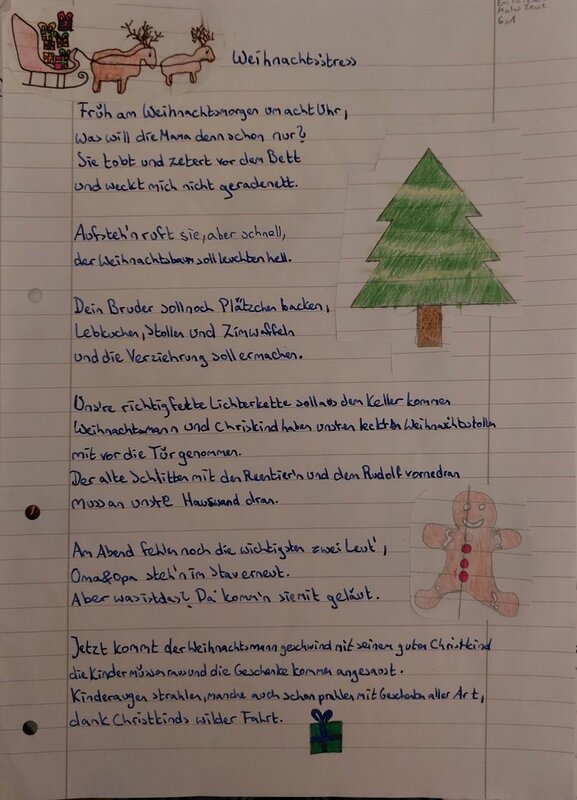 Weihnachtsstress
Früh am Weihnachtsmorgen um acht Uhr,
Was will die Mama denn schon nur?
Sie tobt und zetert vor dem Bett
und weckt mich nicht gerade nett.
Aufsteh'n ruft sie, aber schnell,
der Weihnachtsbaum soll leuchten hell.
Dein Bruder soll noch Plätzchen backen,
Lebkuchen, Stollen und Zimwaffeln
und die Verziehrung soll er machen.
Uns're richtig fette Lichterkette soll aus dem Keller kommen
Weihnachtsmann und Chriskind haben unsren leckren Weihnachtsstollen
mit vor die Tür genommen.
Der alte Schlitten mit den Rentier'n und dem Rudolf vorne dran
muss an unsre Hauswand dran.
Am Abend fehlen noch die wichtigsten zwei Leut',
Oma&Opa steh'n im Stau erneut.
Aber was ist das? Da komm'n sie mit geläut.
Jetzt kommt der Weihnachtsmann geschwind mit seinem guten Christkind
die Kinder müssen raus und die Geschenke kommen angesaust.
Kinderaugen strahlen, manche auch schon prahlen mit Geschenken aller Art,
dank Christkinds wilder Fahrt.